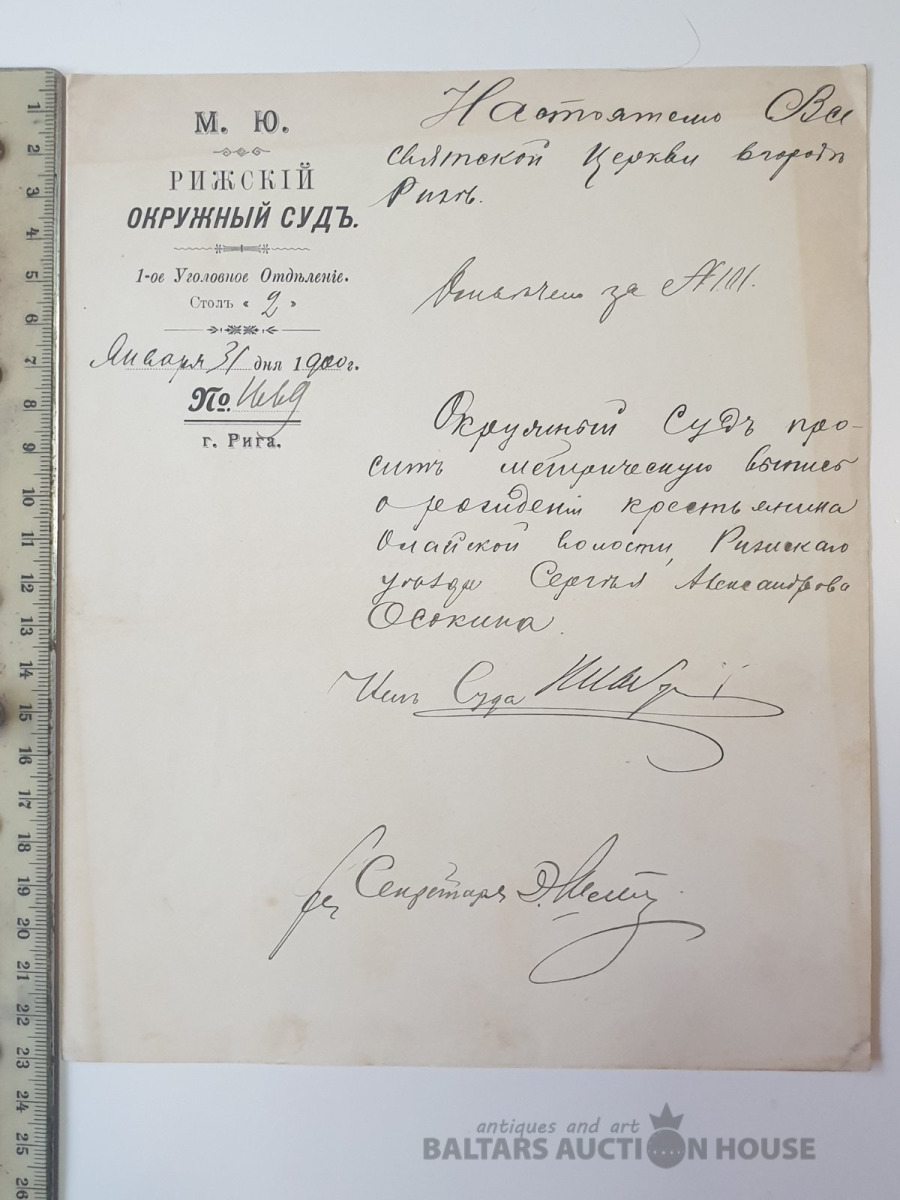 М. Ю.
РИЖСКІЙ
ОКРУЖНЫЙ СУДЪ.
1-ое Уголовное Отдѣленіе.
Столъ « 2 »
Января 31 дня 1900 г.
№ 1669
г. Рига.
Настоятелю Все
святской Церкви въ городѣ
Ригѣ.
за № 101.
Окружный Судъ про-
ситъ метрическую выпись
о рожденіи крестьянина
Олайской волости, Рижскаго
уѣзда Сергѣя Александрова
Осокина.
Член Суда
Секретаря
1
2
3
4
5
6
7
8
9
10
11
12
13
14
15
16
17
18
19
20
21
22
23
24
25
26
antiques and art
BALTARS AUCTION HOUSE